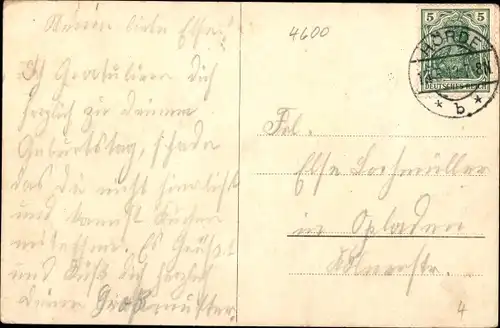 Meine liebe Else!
Ich Gratuliere Dich
herzlich zu deinem
Geburtstag, schade
das Du nicht hier bist
und kannst Kuchen
mitessen. Es Grüßt
und Küßt dich herzlich
deine Großmutter.
4600
5 5
DEUTSCHES REICH
HÖRDE
* b *
Frl.
Else
in Opladen
Kölnerstr.
4